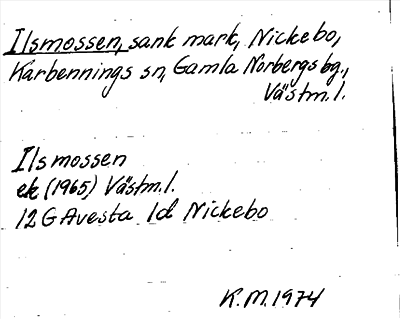 Ilsmossen, sank mark, Nickebo,
Karbennings sn, Gamla Norbergs bg.,
Västm.l.
Ilsmossen
ek (1965) Västm.l.
12G Avesta 1d Nickebo
K.M. 1974